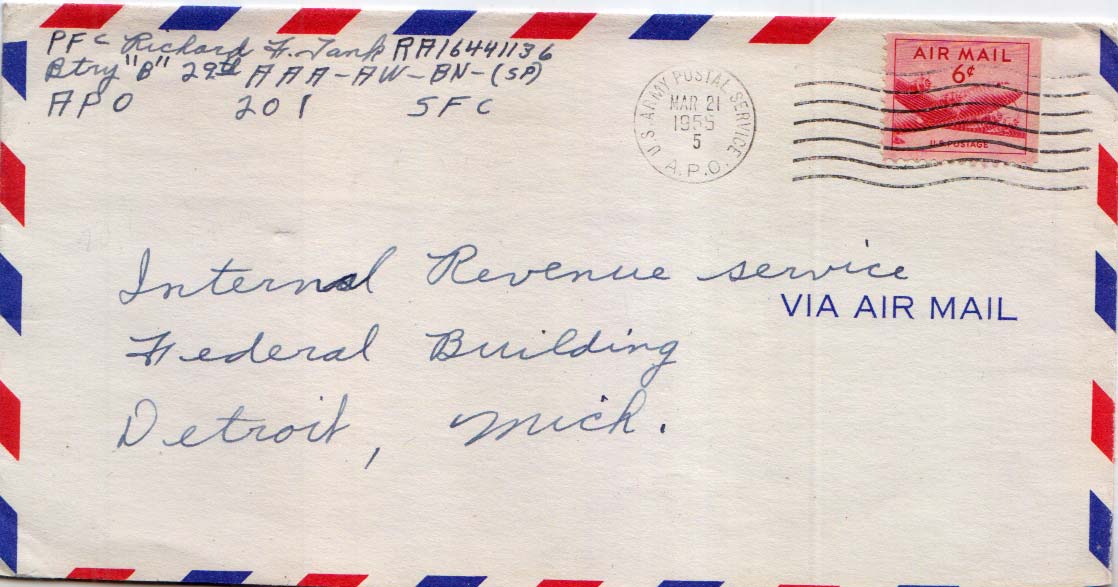 PFC Richard F. Tank RA16441136
Btry "B" 29th AAA-AW-BN-(SP)
APO 201 SFC
U.S. ARMY POSTAL SERVICE
MAR 21
1955
5
A.P.O.
AIR MAIL
6¢
U.S. POSTAGE
Internal Revenue service
VIA AIR MAIL
Federal Building
Detroit, Mich.